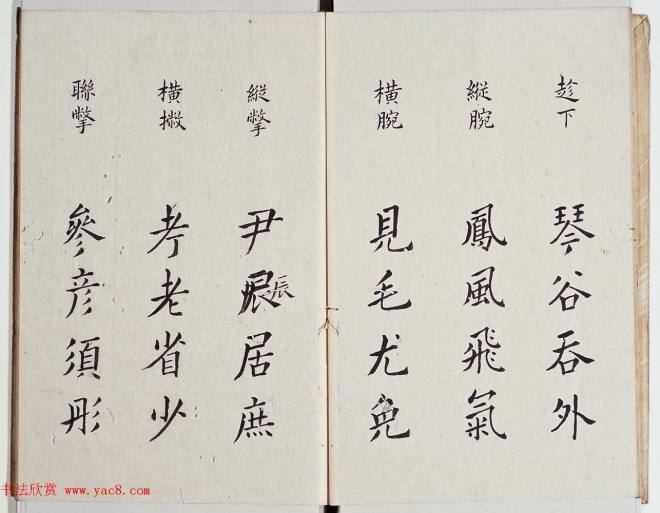 趁下
琴谷吞外
縱腕
鳳風飛氣
橫腕
見毛尤免
縱撆
尹晨辰居庶
橫撇
考老省少
聯撆
參彦須彤
书法欣赏 www.yac8.com